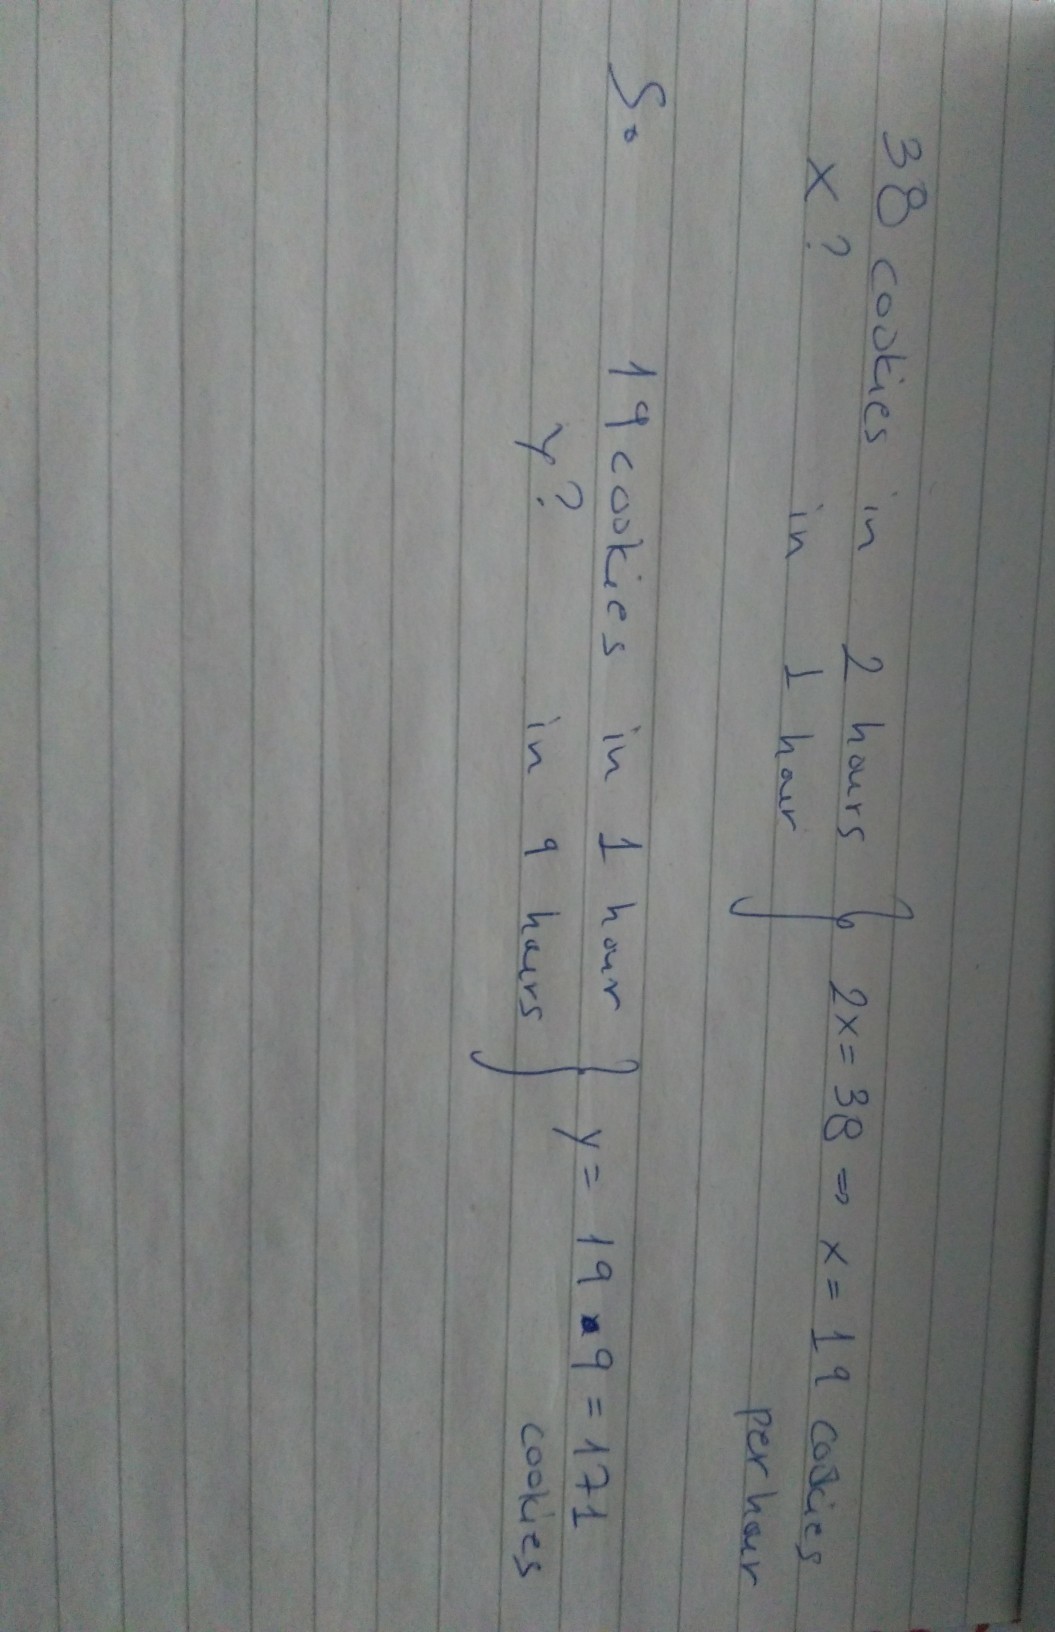 38 cookies in 2 hours } 2x = 38 ⇒ x = 19 cookies
x? in 1 hour per hour
So 19 cookies in 1 hour } y = 19 • 9 = 171
y? in 9 hours cookies